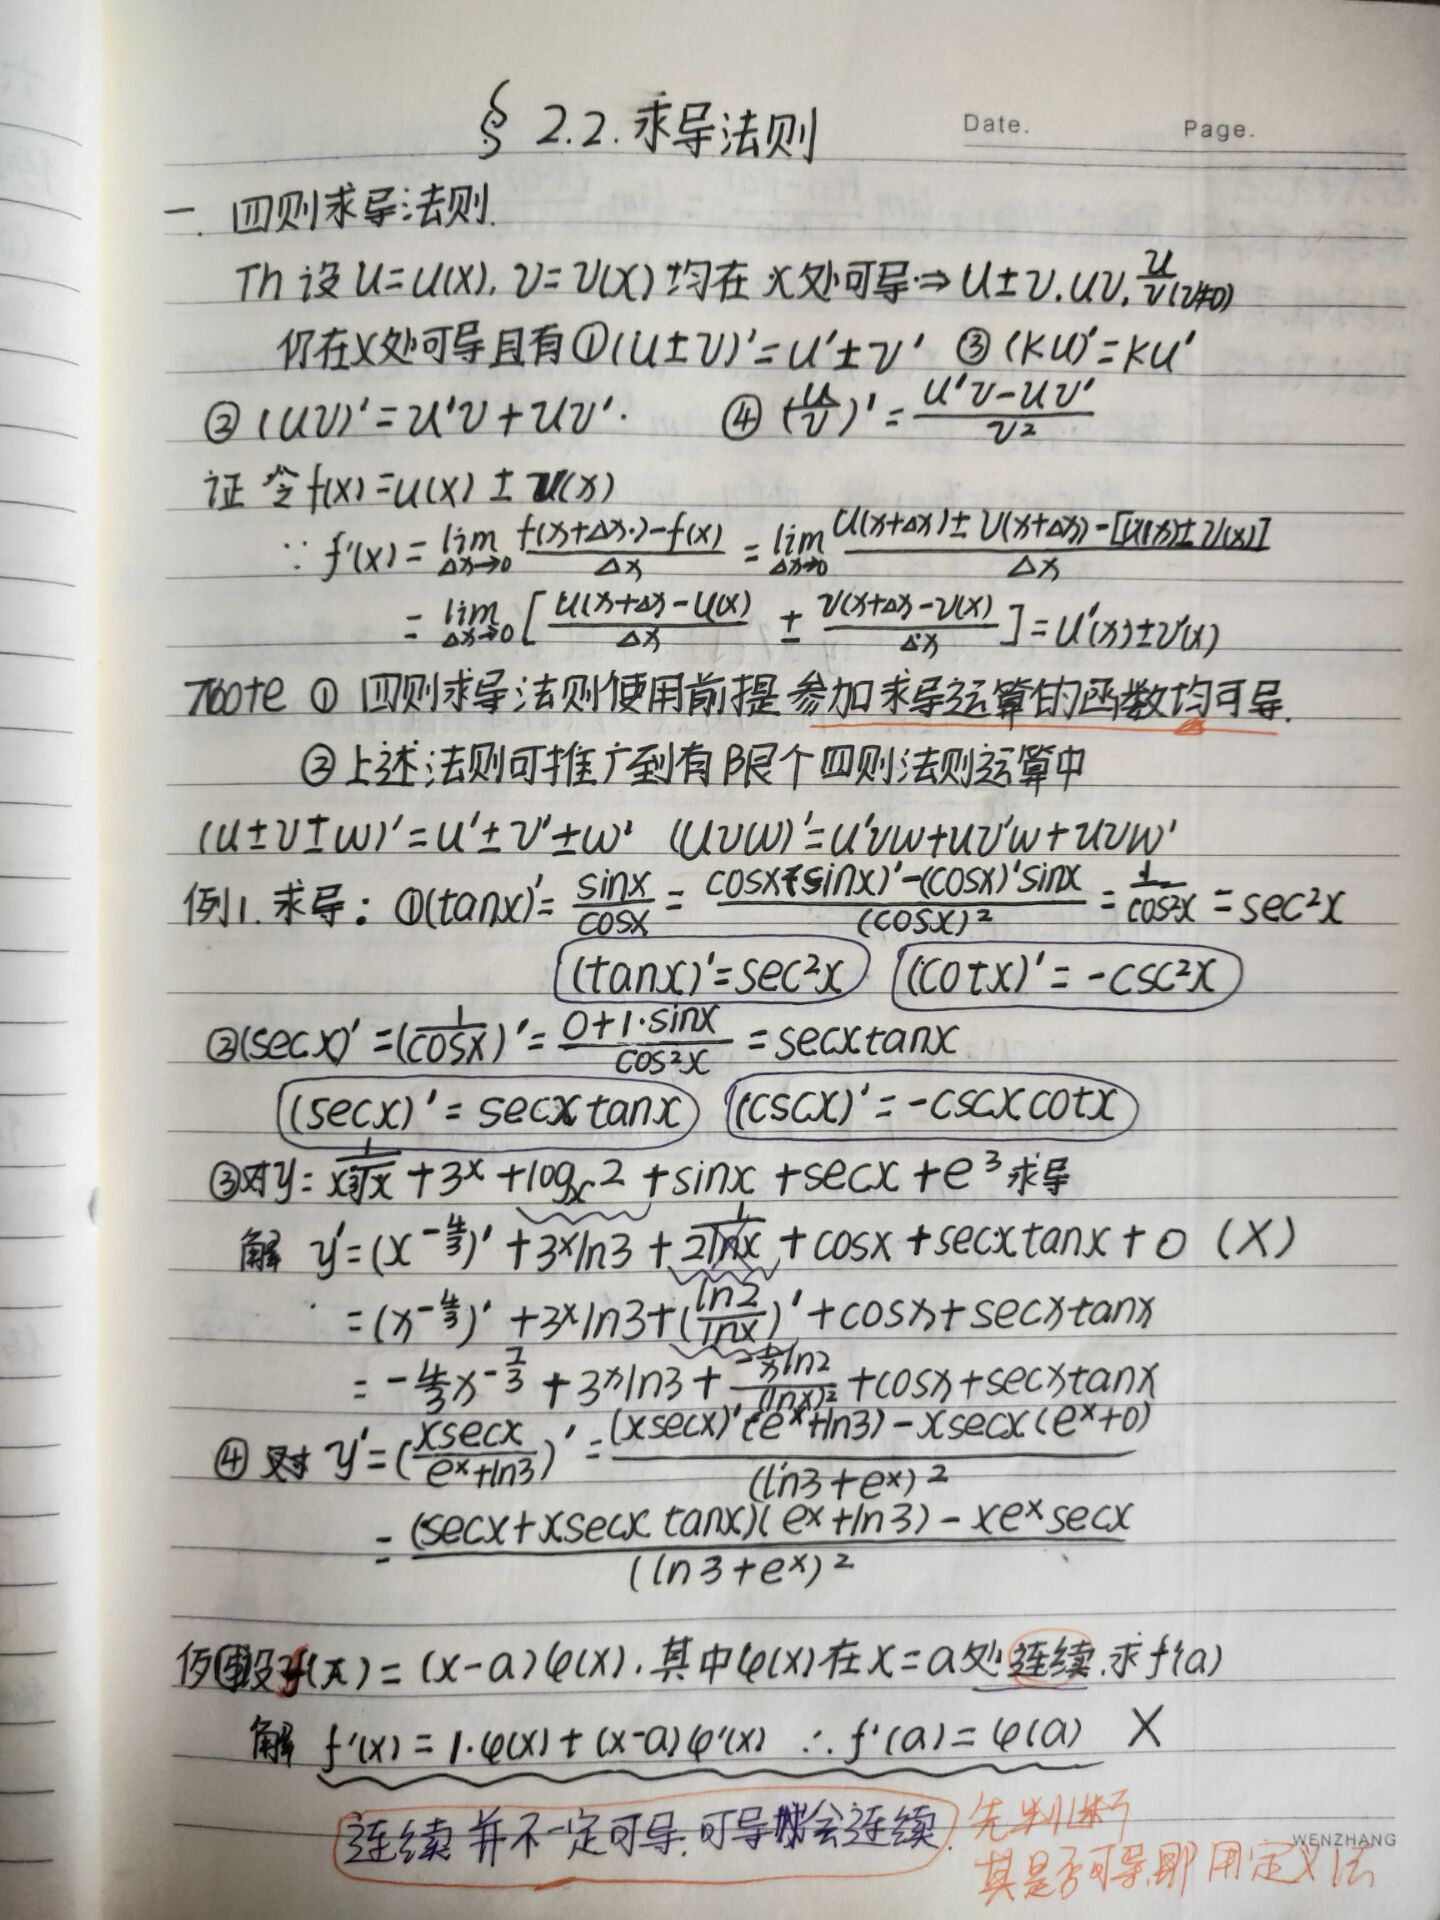 § 2.2. 求导法则
Date. Page.
一. 四则求导法则.
Th 设 u=u(x), v=v(x) 均在 x 处可导⇒ u±v, uv, u/v (v≠0)
仍在x处可导且有①(u±v)'=u'±v' ③(ku)'=ku'
②(uv)'=u'v+uv'. ④(u/v)'=(u'v-uv')/v²
证 令 f(x)=u(x)±v(x)
∵ f'(x)=lim Δx→0 (f(x+Δx)-f(x))/Δx = lim Δx→0 (u(x+Δx)±v(x+Δx)-[u(x)±v(x)])/Δx
= lim Δx→0 [(u(x+Δx-u(x))/Δx ± (v(x+Δx-v(x))/Δx] = u'(x)±v'(x)
Note ① 四则求导法则使用前提 参加求导运算的函数均可导.
②上述法则可推广到有限个四则法则运算中
(u±v±w)'=u'±v'±w' (uvw)'=u'vw+uv'w+uvw'
例1. 求导: ①(tanx)'=sinx/cosx=(cosx(sinx)'-(cosx)'sinx)/(cosx)²=1/cos²x=sec²x
(tanx)'=sec²x (cotx)'=-csc²x
②(secx)'=(1/cosx)'=(0+1·sinx)/cos²x=secxtanx
(secx)'=secxtanx (cscx)'=-cscxcotx
③对y=1/(x∛x)+3ˣ+logₓ2+sinx+secx+e³求导
解 y'=(x^(-4/3))'+3ˣln3+1/(2lnx)+cosx+secxtanx+0 (X)
=(x^(-4/3))'+3ˣln3+(ln2/lnx)'+cosx+secxtanx
=-4/3x^(-7/3)+3ˣln3+(-1/x ln2)/(lnx)²+cosx+secxtanx
④ 对 y'=(xsecx/(eˣ+ln3))'=((xsecx)'(eˣ+ln3)-xsecx(eˣ+0))/(ln3+eˣ)²
=((secx+xsecx tanx)(eˣ+ln3)-xeˣsecx)/(ln3+eˣ)²
设f(x)=(x-a)φ(x), 其中φ(x)在x=a处连续.求f'(a)
解 f'(x)=1·φ(x)+(x-a)φ'(x) ∴f'(a)=φ(a) X
连续并不一定可导.可导会连续.
先判断
其是否可导,即用定义法
WENZHANG